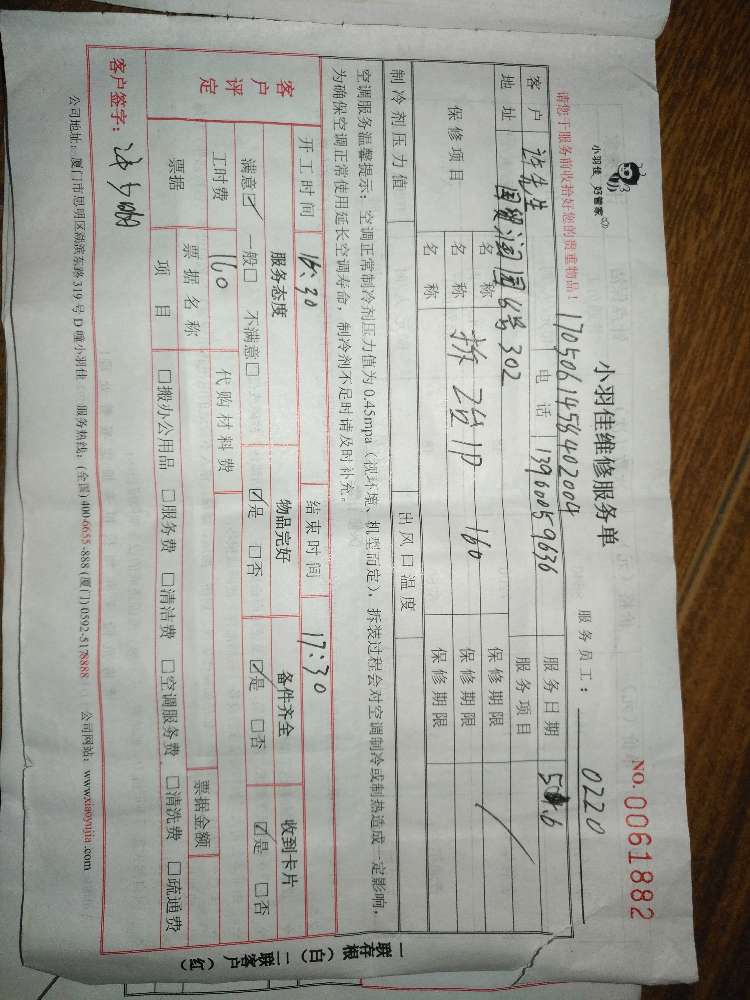 小羽佳 好管家
小羽佳维修服务单
NO. 0061882
请您于服务前收拾好您的贵重物品！
1705061458402004
服务员工： 0220
客户 许先生 电话 13960059636 服务日期
地址 国贸润园6号302 服务项目
保修项目
名称 保修期限
名称 拆2台1P 160 保修期限
名称 保修期限
制冷剂压力值 出风口温度
空调服务温馨提示：空调正常制冷剂压力值为0.45mpa（视环境、机型而定），拆装过程会对空调制冷或制热造成一定影响，
为确保空调正常使用延长空调寿命，制冷剂不足时请及时补充。
开工时间 结束时间 17:30
客户评定
服务态度 物品完好 备件齐全 收到卡片
满意☑ 一般□ 不满意□ ☑是 □否 ☑是 □否 ☑是 □否
工时费 160 代购材料费
票据 票据名称 票据金额
项目 □搬办公用品 □服务费 □清洁费 □空调服务费 □清洗费 □疏通费
客户签字：
公司地址：厦门市思明区湖滨东路319号D幢小羽佳 服务热线：(全国)400-6655-888 (厦门)0592-5178888 公司网站：www.xiaoyujia.com
一联存根（白）二联客户（红）